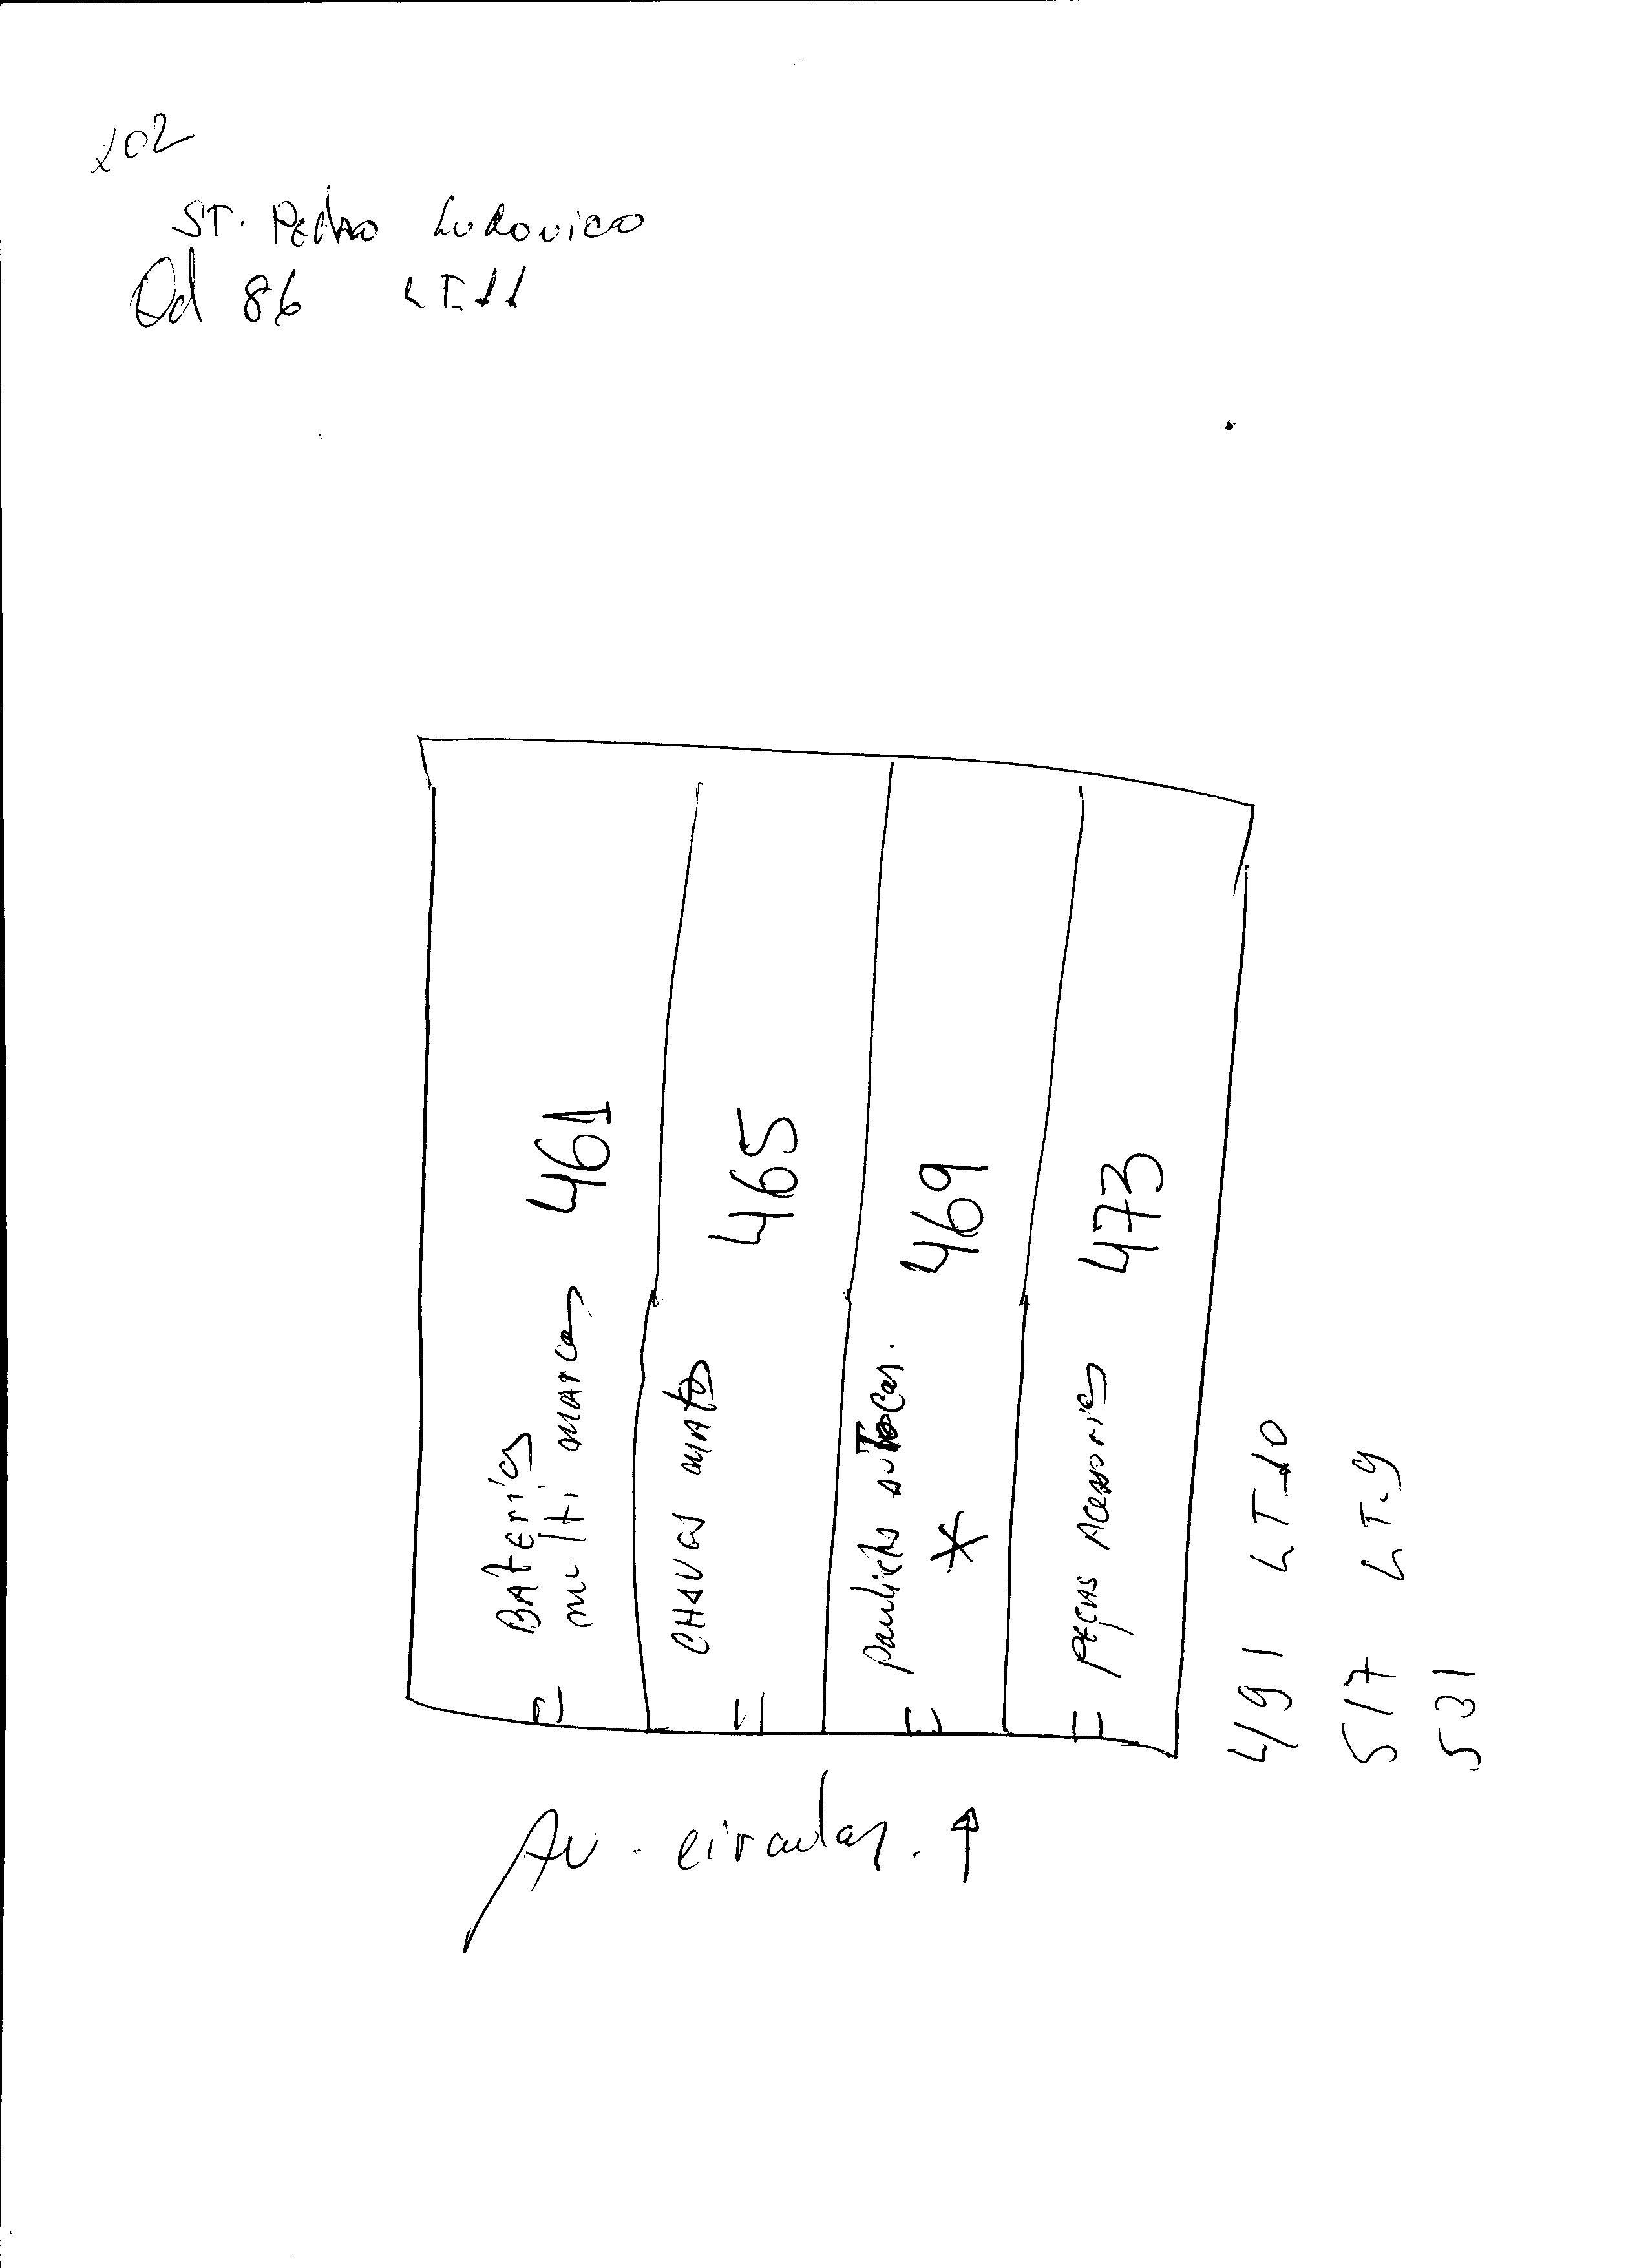 202
ST. Pedro Ludovico
Qd 86 LT.11
Baterias
multi marcas 461
CHAVES MATOS 465
Paulista autocar. 469
*
PEÇAS Acessorios 473
491 LT.10
517 LT.9
531
Av. circular. ↑